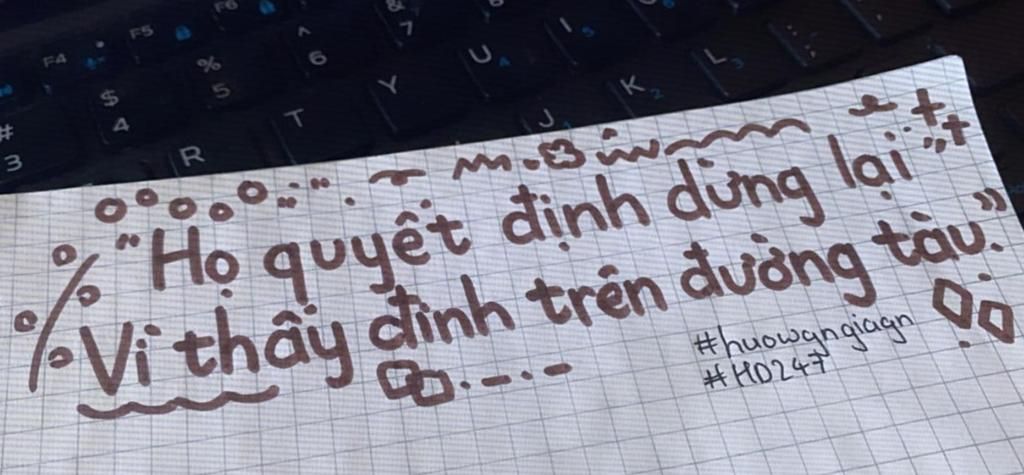 F4 F5 F6
# $ % ^ &
3 4 5 6 7
R T Y U 4 I 5
J K 2 L 3
"Họ quyết định dừng lại"
Vì thấy đinh trên đường tàu."
#huowgngiagn
#HD247